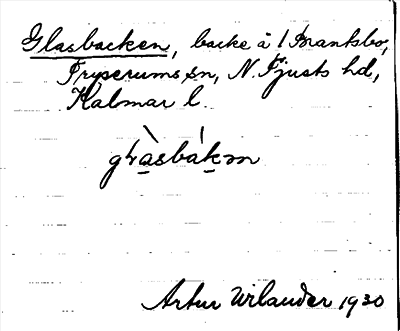 Glasbacken, backe å 1 Brantsbo,
Tryserums sn, N. Tjusts hd,
Kalmar l.
Artur Wilander 1930